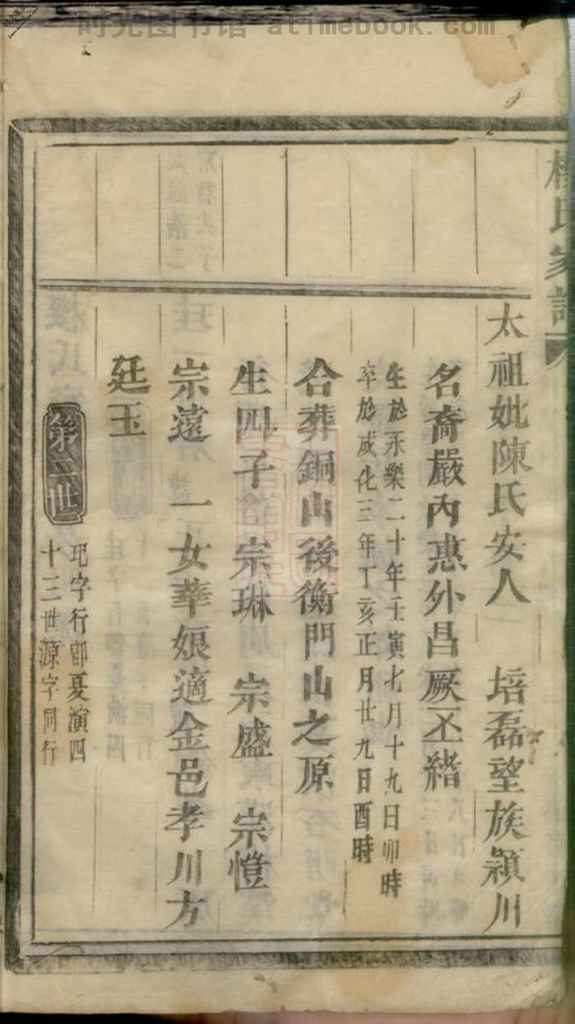 时光图书馆 atimebook.com
楼氏家譜
太祖妣陳氏安人 培磊望族潁川
名裔嚴內惠外昌厥丕緒
生於永樂二十年壬寅七月十九日卯時
卒於成化三年丁亥正月廿九日酉時
合葬銅山後衡門山之原
生四子 宗琳 宗盛 宗愷
宗遠 一女華娘適金邑孝川方
廷玉
第二世
玘字行郎夏演四
十三世源字同行